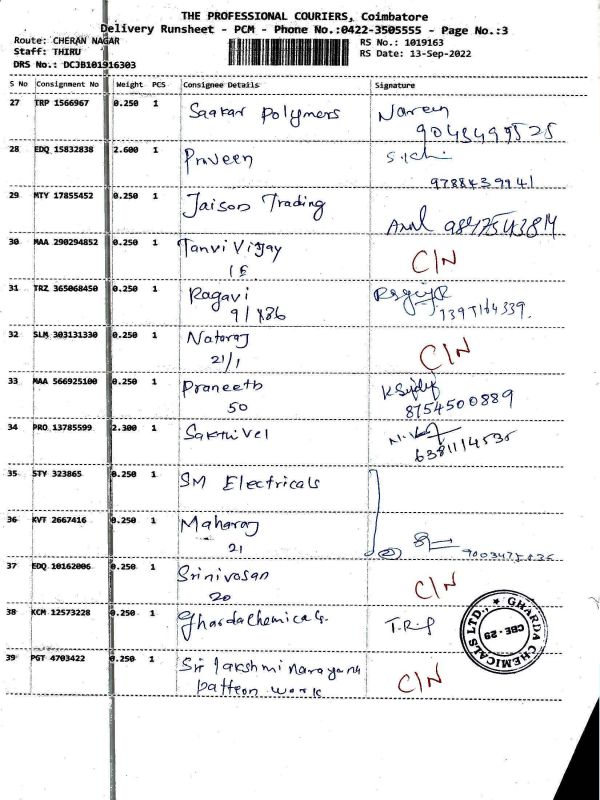 THE PROFESSIONAL COURIERS, Coimbatore
Delivery Runsheet - PCM - Phone No.:0422-3505555 - Page No.:3
Route: CHERAN NAGAR RS No.: 1019163
Staff: THIRU RS Date: 13-Sep-2022
DRS No.: DCJB101916303
S No Consignment No Weight PCS Consignee Details Signature
27 TRP 1566967 0.250 1 Saakar Polymers Naveen
28 EDQ 15832838 2.600 1 Praveen
9788439941
29 MTY 17855452 0.250 1 Jaison Trading
30 MAA 290294852 0.250 1 Tanvi Vijay C/N
31 TRZ 365068450 0.250 1 Ragavi
32 SLM 303131330 0.250 1 Nataraj C/N
21/1
33 MAA 566925100 0.250 1 Praneeth
50 8754500889
34 PRO 13785599 2.300 1 Sakthivel
35 STY 323865 0.250 1 SM Electricals
36 KVT 2667416 0.250 1 Maharaj
21
37 EDQ 10162006 0.250 1 Srinivasan C/N
20
38 KCM 12573228 0.250 1 Ghardachemicals. T.R.P
GHARDA CHEMICALS LTD.,
CBE - 29
39 PGT 4703422 0.250 1 Sri lakshmi narayana C/N
patteon work